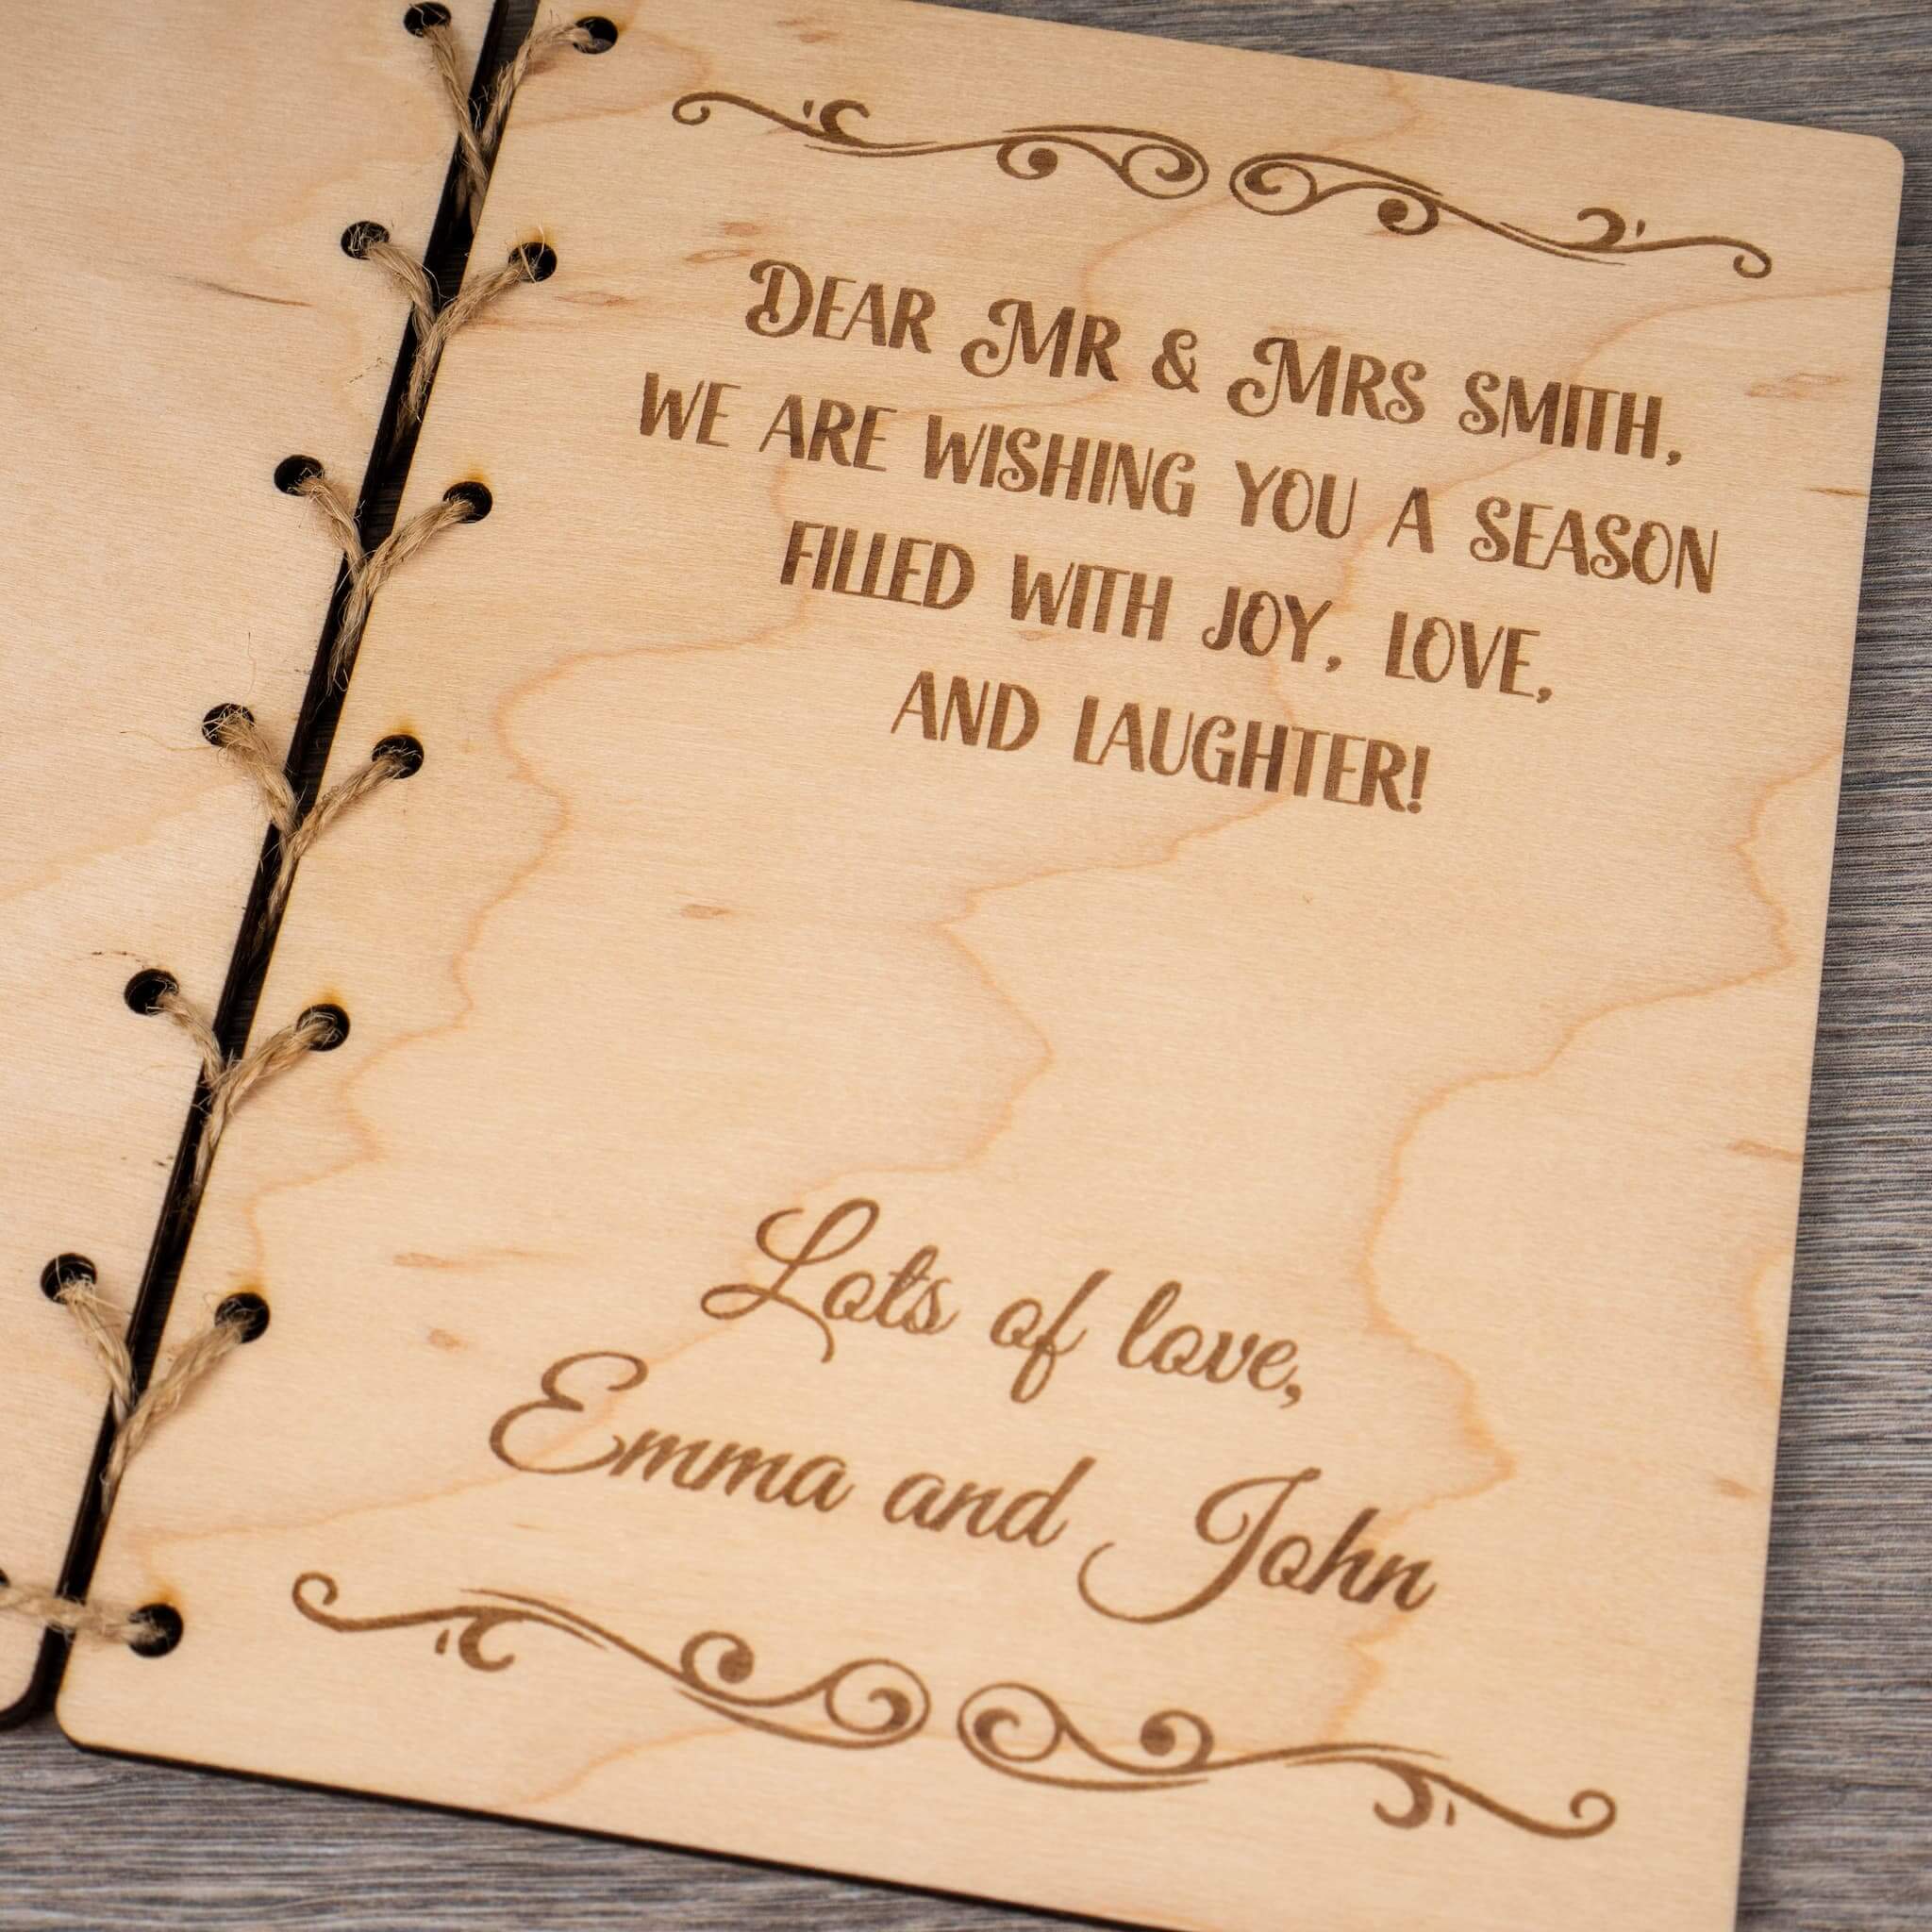 DEAR MR & MRS SMITH,
WE ARE WISHING YOU A SEASON
FILLED WITH JOY, LOVE,
AND LAUGHTER!
Lots of love,
Emma and John